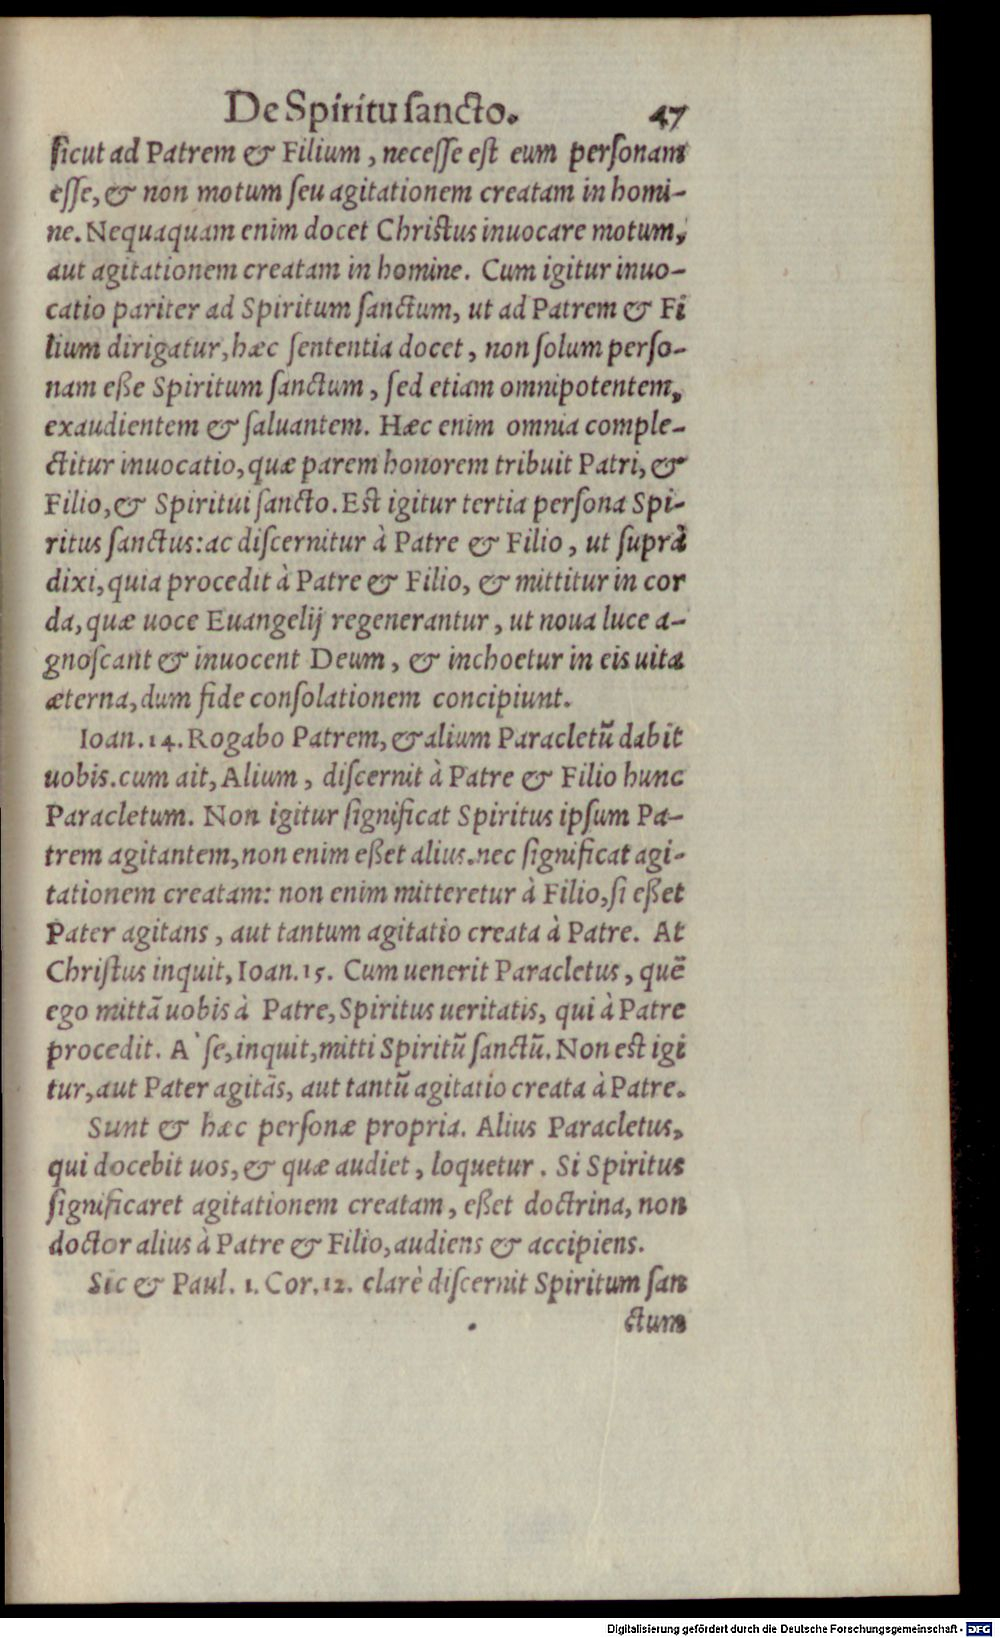 De Spiritu ſancto. 47
ſicut ad Patrem & Filium, neceſſe eſt eum perſonam
eſſe, & non motum ſeu agitationem creatam in homi-
ne. Nequaquam enim docet Chriſtus inuocare motum,
aut agitationem creatam in homine. Cum igitur inuo-
catio pariter ad Spiritum ſanctum, ut ad Patrem & Fi
lium dirigatur, hæc ſententia docet, non ſolum perſo-
nam eße Spiritum ſanctum, ſed etiam omnipotentem,
exaudientem & ſaluantem. Hæc enim omnia comple-
ctitur inuocatio, quæ parem honorem tribuit Patri, &
Filio, & Spiritui ſancto. Eſt igitur tertia perſona Spi-
ritus ſanctus: ac diſcernitur à Patre & Filio, ut ſuprà
dixi, quia procedit à Patre & Filio, & mittitur in cor
da, quæ uoce Euangelij regenerantur, ut noua luce a-
gnoſcant & inuocent Deum, & inchoetur in eis uita
æterna, dum fide conſolationem concipiunt.
Ioan. 14. Rogabo Patrem, & alium Paracletũ dabit
uobis. cum ait, Alium, diſcernit à Patre & Filio hunc
Paracletum. Non igitur ſignificat Spiritus ipſum Pa-
trem agitantem, non enim eßet alius. nec ſignificat agi-
tationem creatam: non enim mitteretur à Filio, ſi eßet
Pater agitans, aut tantum agitatio creata à Patre. At
Chriſtus inquit, Ioan. 15. Cum uenerit Paracletus, quẽ
ego mittã uobis à Patre, Spiritus ueritatis, qui à Patre
procedit. A` ſe, inquit, mitti Spiritũ ſanctũ. Non eſt igi
tur, aut Pater agitãs, aut tantũ agitatio creata à Patre.
Sunt & hæc perſonæ propria. Alius Paracletus,
qui docebit uos, & quæ audiet, loquetur. Si Spiritus
ſignificaret agitationem creatam, eßet doctrina, non
doctor alius à Patre & Filio, audiens & accipiens.
Sic & Paul. 1. Cor. 12. clarè diſcernit Spiritum ſan
ctum
Digitalisierung gefördert durch die Deutsche Forschungsgemeinschaft - DFG